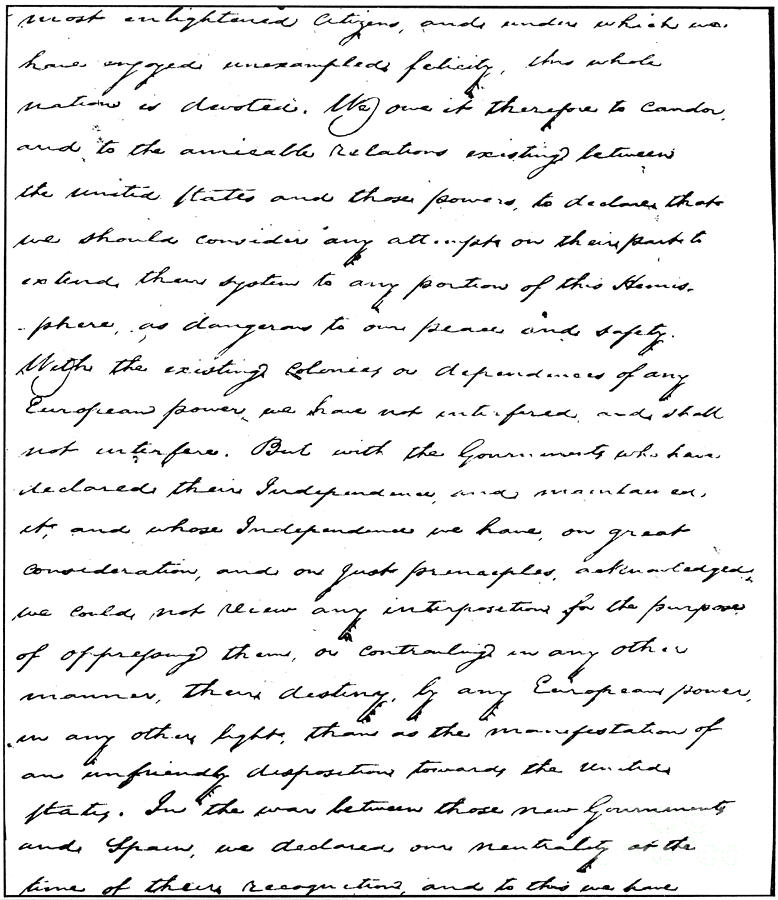 most enlightened Citizens, and under which we
have enjoyed unexampled felicity, this whole
nation is devoted. We owe it therefore to candor,
and to the amicable relations existing between
the united states and those powers, to declare that
we should consider any attempt on their part to
extend their system to any portion of this Hemis-
-phere, as dangerous to our peace and safety.
With the existing Colonies or dependencies of any
European power, we have not interfered, and shall
not interfere. But with the Governments who have
declared their Independence, and maintained
it, and whose Independence we have, on great
consideration, and on just principles, acknowledged,
we could not view any interposition for the purpose
of oppressing them, or controuling in any other
manner, their destiny, by any European power,
in any other light, than as the manifestation of
an unfriendly disposition towards the United
States. In the war between those new Governments
and Spain, we declared our neutrality at the
time of their recognition, and to this we have